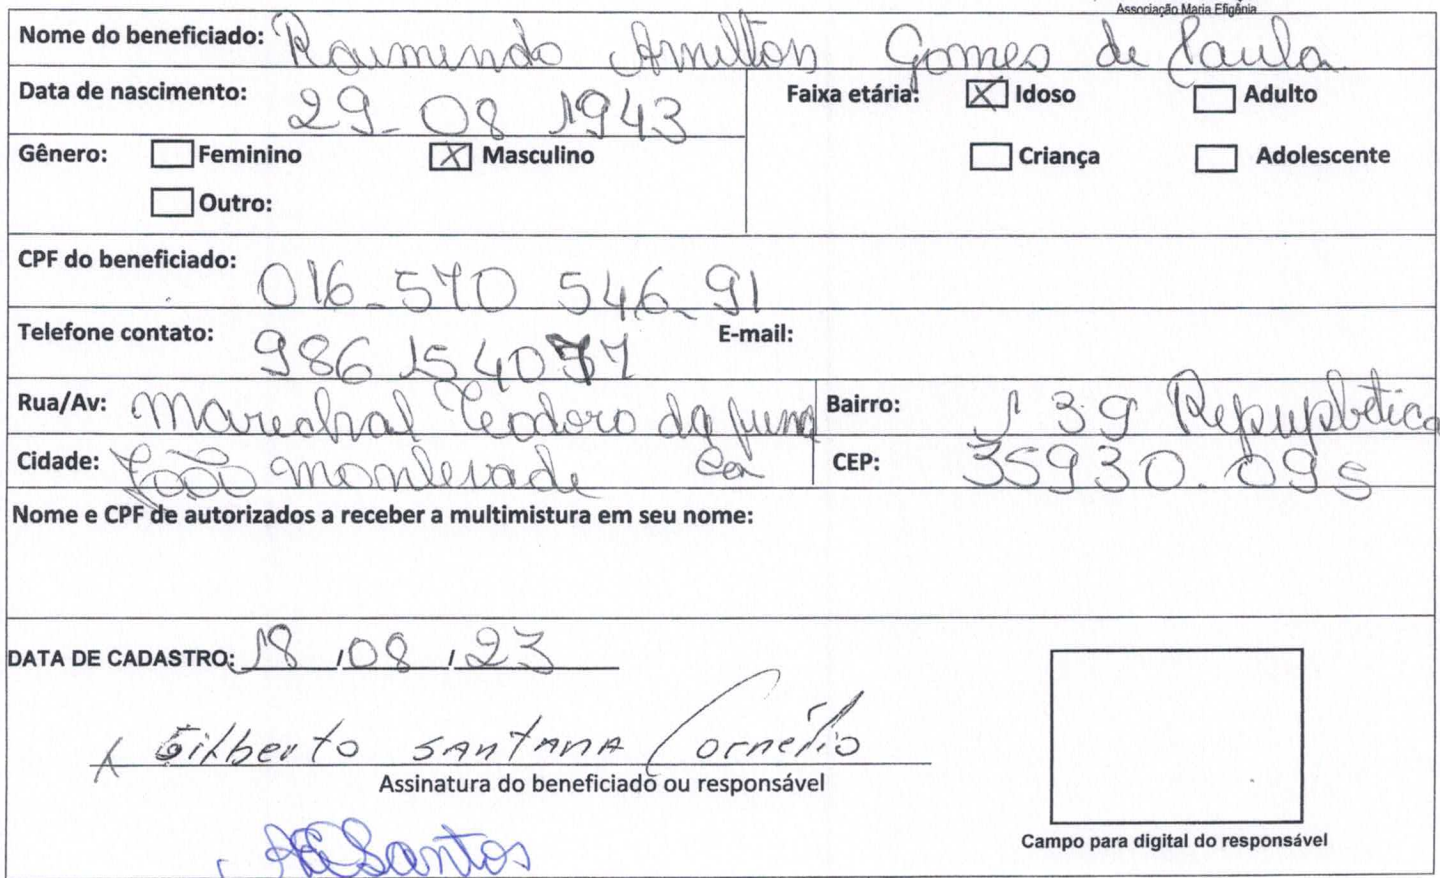 Associação Maria Efigênia
Nome do beneficiado: Raimundo Amilton Gomes de Paula
Data de nascimento: 29-08 1943
Faixa etária: X Idoso Adulto
Gênero: Feminino X Masculino
Criança Adolescente
Outro:
CPF do beneficiado: 016-570 546-91
Telefone contato: 986154071 E-mail:
Rua/Av: Marechal Teodoro da Bairro: 139 Repupbetica
Cidade: João monlevade CEP: 35930.095
Nome e CPF de autorizados a receber a multimistura em seu nome:
DATA DE CADASTRO: 18/08/23
X Gilberto SANTANA Cornélio
Assinatura do beneficiado ou responsável
Campo para digital do responsável
Santos